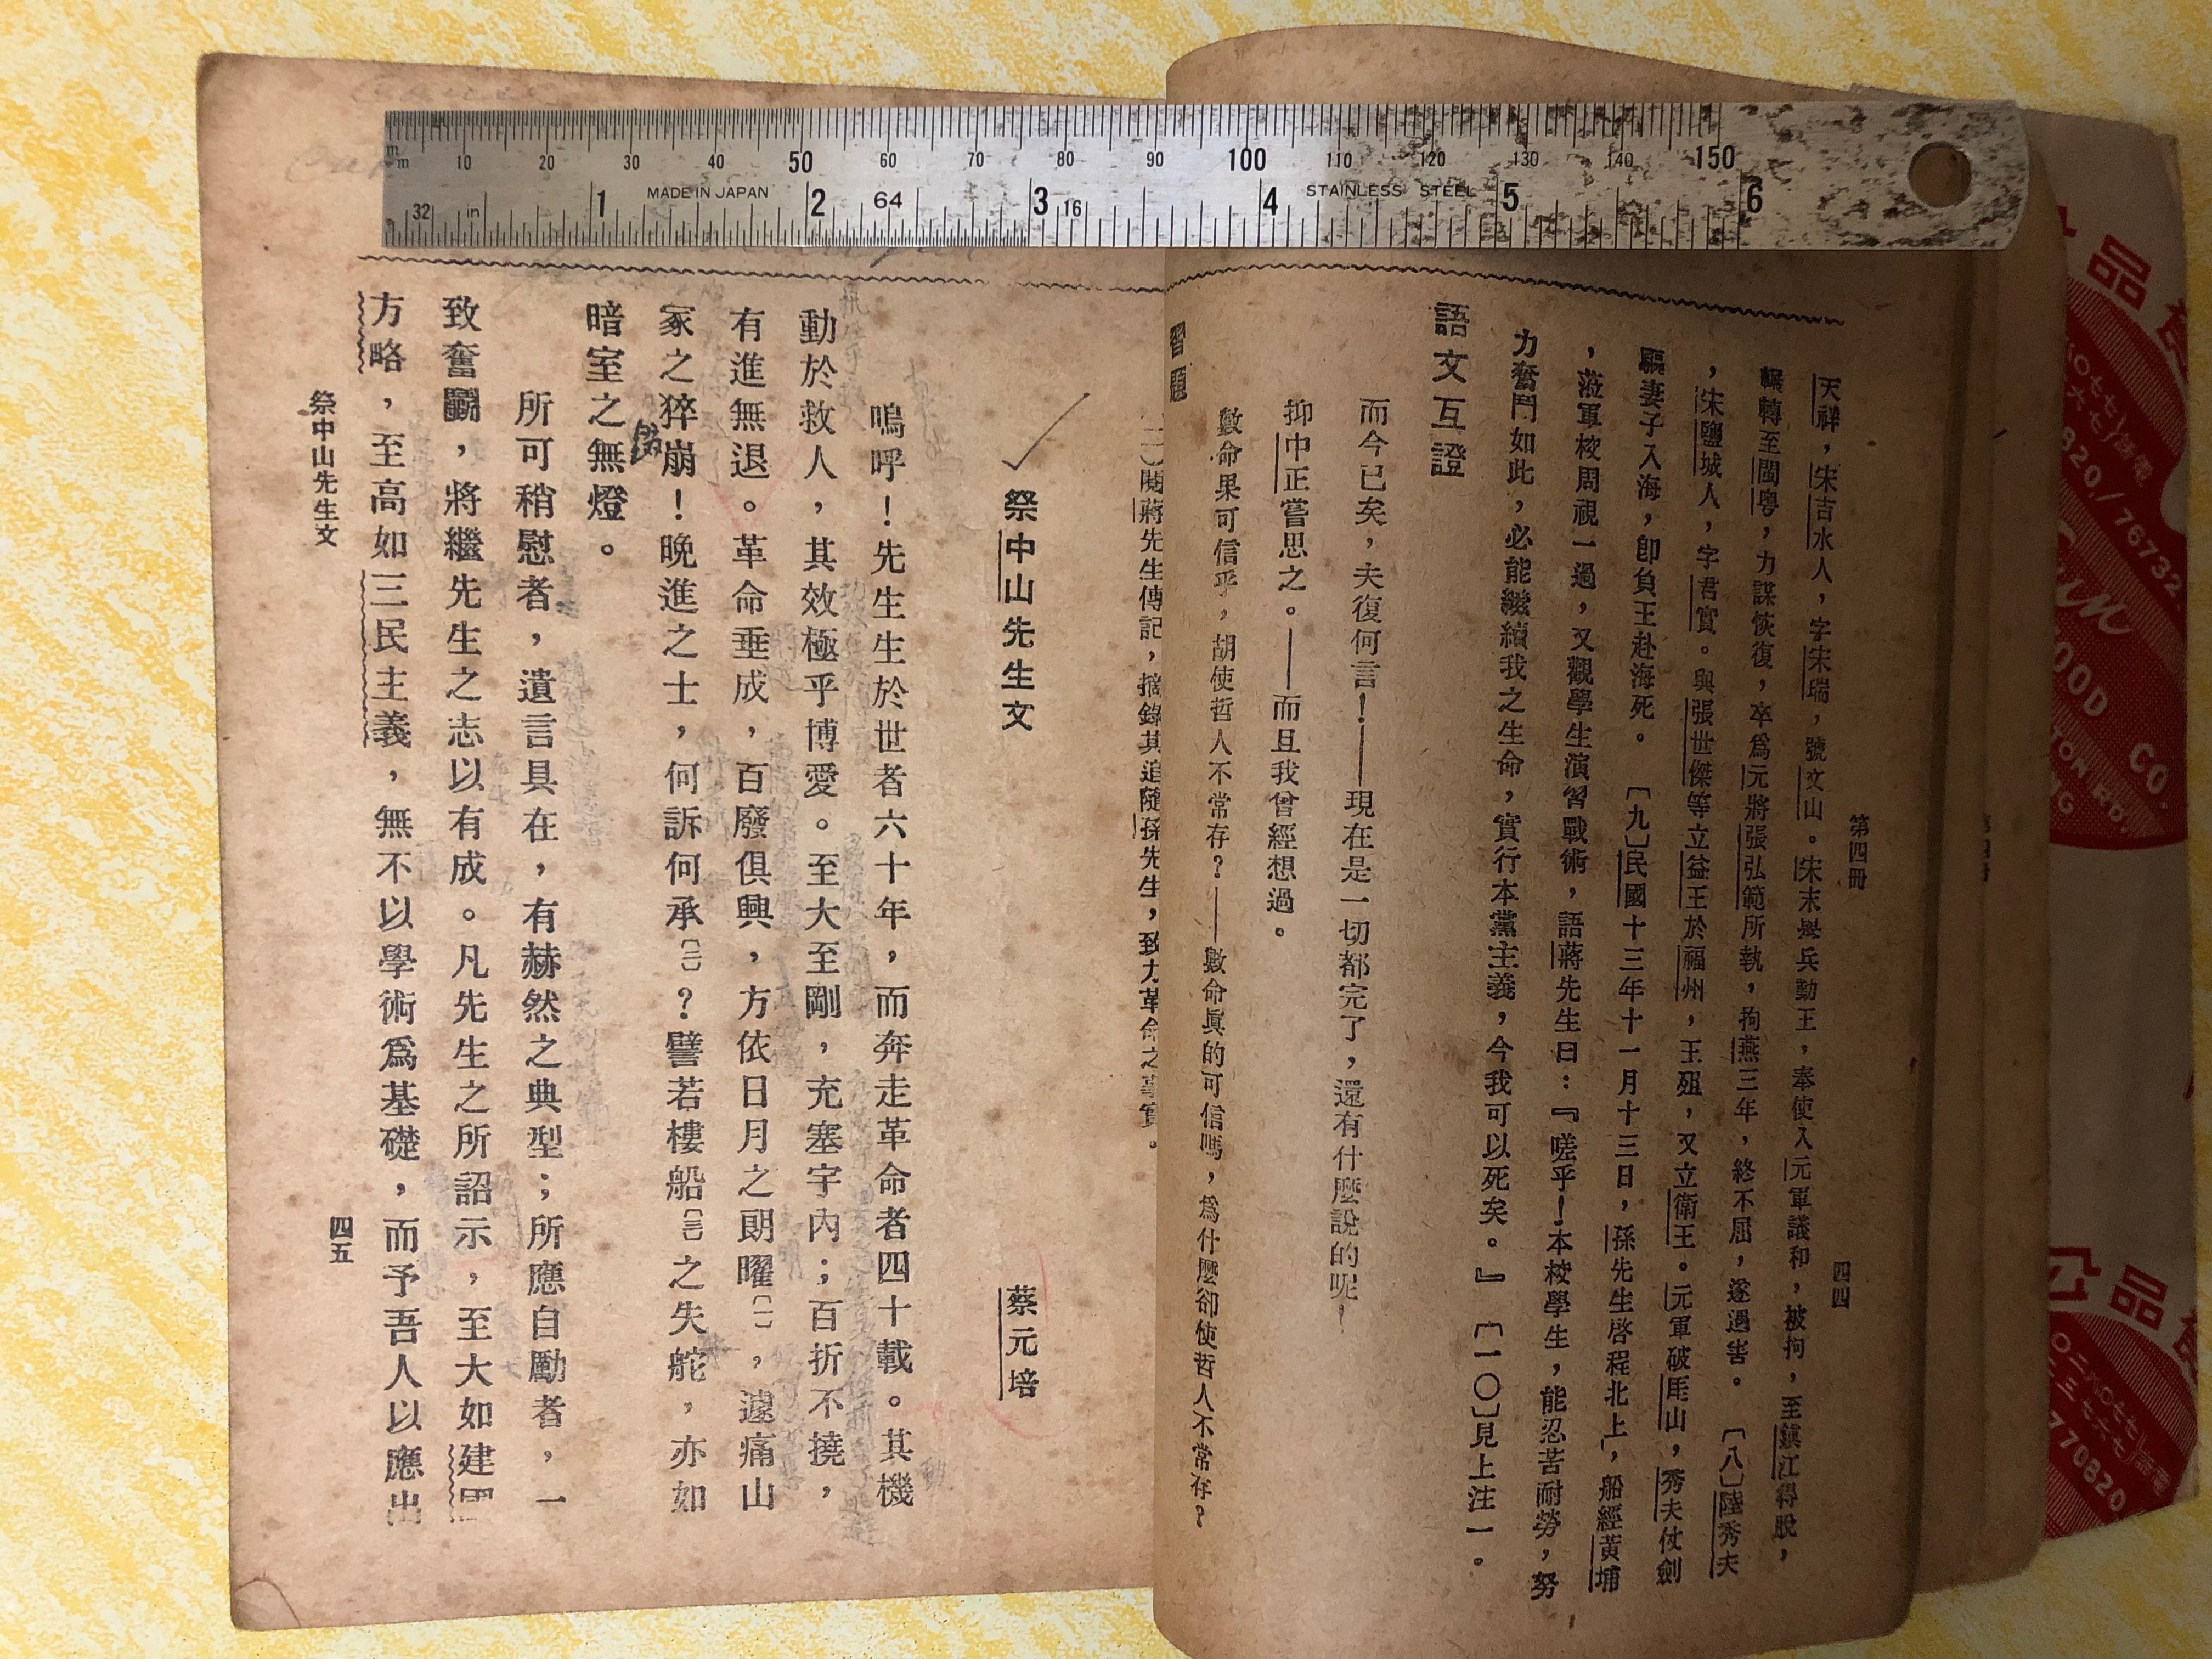 m
m 10 20 30 40 50 60 70 80 90 100 110 120 130 140 150
MADE IN JAPAN 64 STAINLESS STEEL
32 in 1 2 3 16 4 5 6
第四冊
四四
天祥，宋吉水人，字宋瑞，號文山。宋末興兵勤王，奉使入元軍議和，被拘，至鎮江得脫，
輾轉至閩粵，力謀恢復，卒爲元將張弘範所執，拘燕三年，終不屈，遂遇害。〔八〕陸秀夫
，宋鹽城人，字君實。與張世傑等立益王於福州，王殂，又立衛王。元軍破厓山，秀夫仗劍
驅妻子入海，卽負王赴海死。〔九〕民國十三年十一月十三日，孫先生啓程北上，船經黃埔
，蒞軍校周視一過，又觀學生演習戰術，語蔣先生曰：『嗟乎！本校學生，能忍苦耐勞，努
力奮鬥如此，必能繼續我之生命，實行本黨主義，今我可以死矣。』〔一〇〕見上注一。
語文互證
而今已矣，夫復何言！——現在是一切都完了，還有什麼說的呢！
抑中正嘗思之。——而且我曾經想過。
數命果可信乎，胡使哲人不常存？——數命眞的可信嗎，爲什麼卻使哲人不常存？
習題
閱蔣先生傳記，摘錄其追隨孫先生，致力革命之事實。
祭中山先生文
蔡元培
嗚呼！先生生於世者六十年，而奔走革命者四十載。其機
動於救人，其效極乎博愛。至大至剛，充塞宇內；百折不撓，
有進無退。革命垂成，百廢俱興，方依日月之朗曜〔一〕，遽痛山
冢之猝崩！晚進之士，何訴何承〔二〕？譬若樓船〔三〕之失舵，亦如
暗室之無燈。
所可稍慰者，遺言具在，有赫然之典型；所應自勵者，一
致奮鬭，將繼先生之志以有成。凡先生之所詔示，至大如建國
方略，至高如三民主義，無不以學術爲基礎，而予吾人以應出
祭中山先生文
四五
公品
CO.
OOD
770820